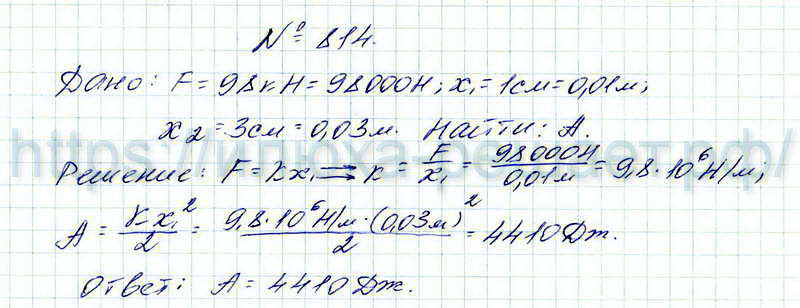 № 814.
Дано: F = 98кН = 98000Н; x₁ = 1см = 0,01м;
x₂ = 3см = 0,03м. Найти: A.
Решение: F = kx₁ ⇒ k = F/x₁ = 98000Н/0,01м = 9,8·10⁶Н/м;
A = kx₁²/2 = 9,8·10⁶Н/м·(0,03м)²/2 = 4410Дж.
Ответ: A = 4410Дж.